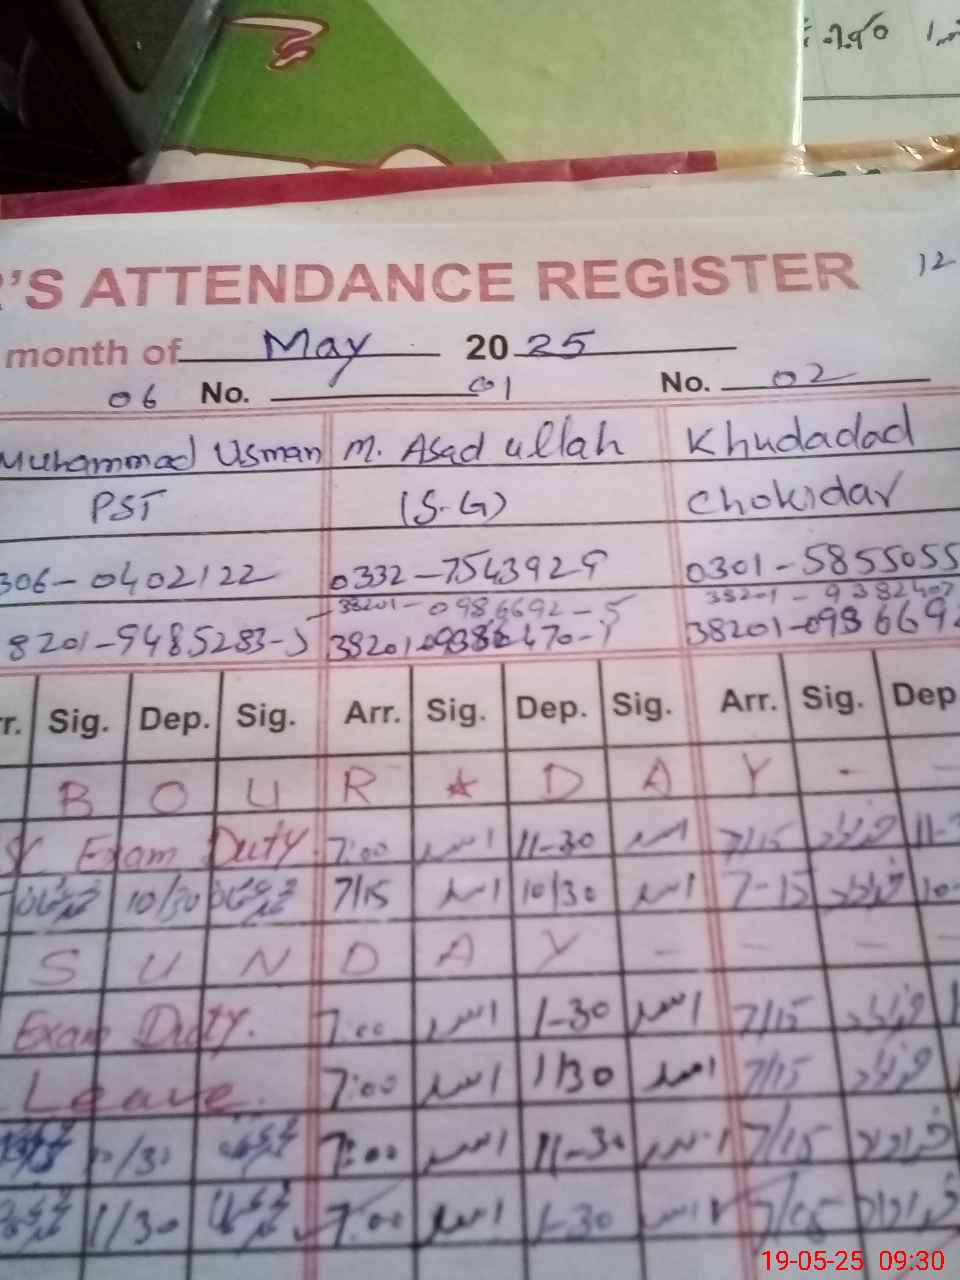 'S ATTENDANCE REGISTER 12
month of May 2025
06 No. 01 No. 02
Muhammad Usman M. Asad ullah Khudadad
PST (S-G) Chokidar
306-0402122 0332-7543929 0301-5855055
38201-0986692-5 38201-9382407
8201-9485283-5 38201- 470- 38201-098669
r. Sig. Dep. Sig. Arr. Sig. Dep. Sig. Arr. Sig. Dep
B O U R ★ D A Y - -
Exam Duty 7:00 اسد 11-30 اسد 7/15 خداداد 11-
10/30 7/15 اسد 10/30 اسد 7-15 خداداد 10-
S U N D A Y - - - -
Exam Duty. 7:00 اسد 1-30 اسد 7/15 خداداد
Leave. 7:00 اسد 1/30 اسد 7/15 خداداد
/30 7:00 اسد 11-30 اسد 7/15 خداداد
1/30 7:00 اسد 1-30 اسد 7/15 خداداد
19-05-25 09:30